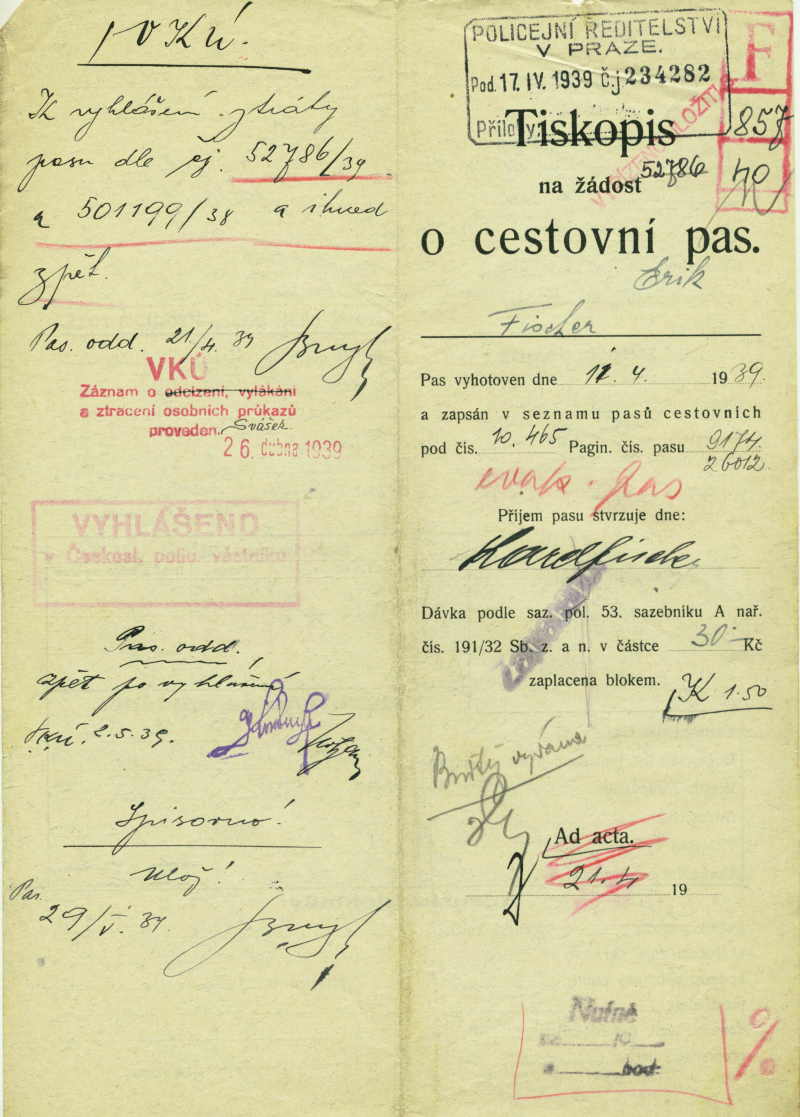 VKÚ.
K vyhlášení ztráty
pasu dle čj. 52786/39
a 501199/38 a ihned
zpět.
Pas. odd. 21/4. 39
VKÚ
Záznam o odcizení, vylákání
a ztracení osobních průkazů
proveden. Svášek
26. dubna 1939
VYHLÁŠENO
v Českosl. polic. věstníku
Pas. odd.
zpět po vyhlášení
VKÚ. 2.5.39.
Spisovno!
Ulož!
Pas.
29/V. 39.
POLICEJNÍ ŘEDITELSTVÍ
V PRAZE.
Pod. 17. IV. 1939 č.j 234282
Přílohy
F
857
40
Tiskopis
na žádost 52786
o cestovní pas.
Erik
Fischer
Pas vyhotoven dne 12. 4. 1939.
a zapsán v seznamu pasů cestovních
pod čís. 10.465 Pagin. čís. pasu 9174.
26012.
evak. pas
Příjem pasu stvrzuje dne:
Dávka podle saz. pol. 53. sazebníku A nař.
čís. 191/32 Sb. z. a n. v částce 30- Kč
zaplacena blokem.
K 1.50
Ad acta.
21.4 19
Nutné
10
hod.
%